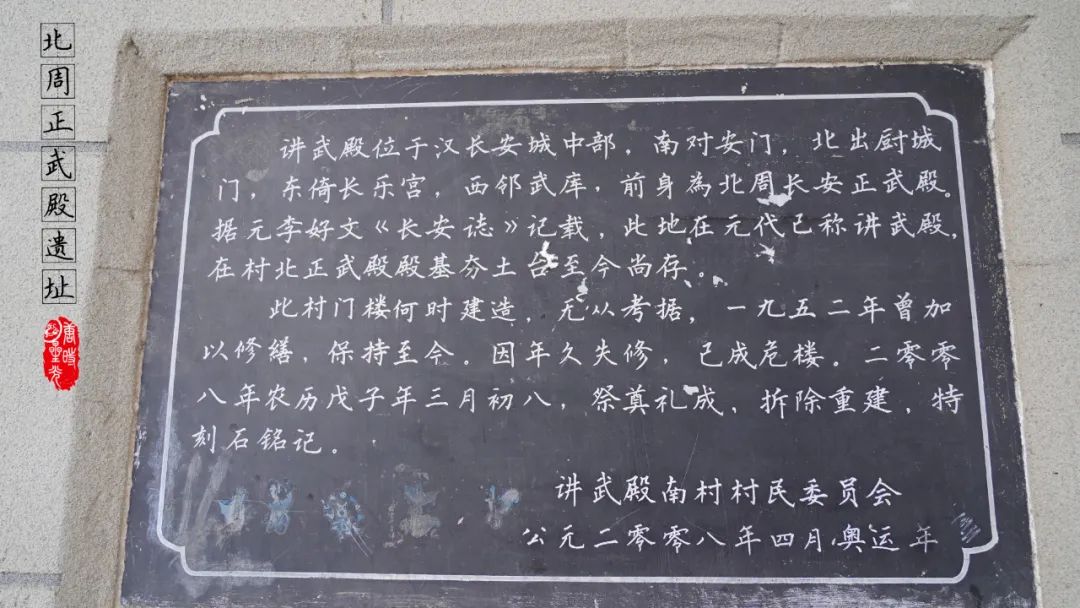 北周正武殿遗址
讲武殿位于汉长安城中部，南对安门，北出厨城
门，东倚长乐宫，西邻武库，前身為北周长安正武殿。
据元李好文《长安志》记载，此地在元代已称讲武殿，
在村北正武殿殿基夯土台至今尚存。
此村门楼何时建造，无从考据，一九五二年曾加
以修缮，保持至今。因年久失修，已成危楼。二零零
八年农历戊子年三月初八，祭奠礼成，拆除重建，特
刻石铭记。
讲武殿南村村民委员会
公元二零零八年四月奥运年